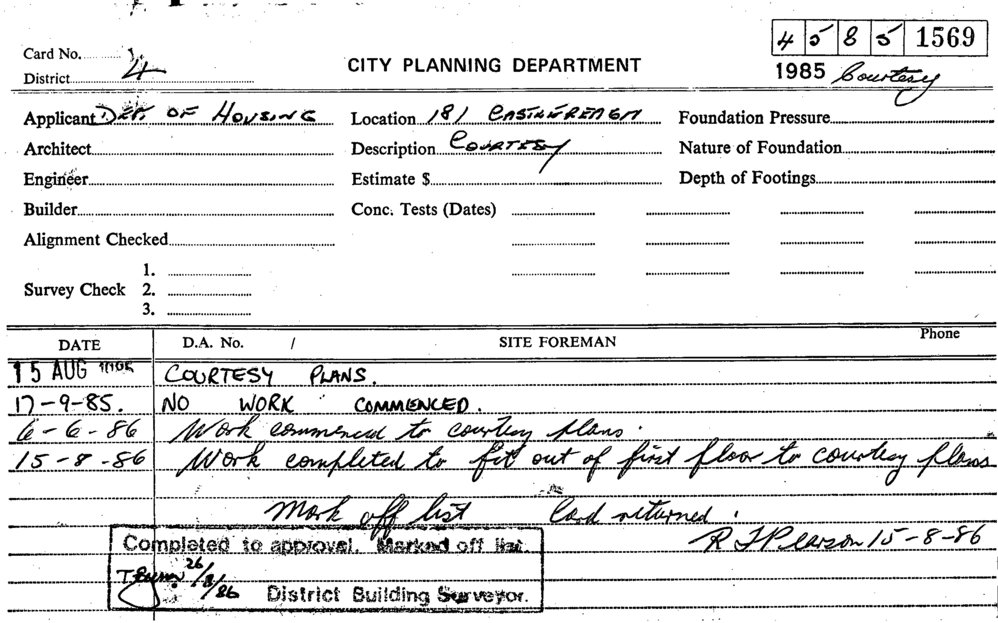 4585 1569
Card No.
CITY PLANNING DEPARTMENT
1985 Courtesy
District 4
Applicant DEPT. OF HOUSING Location 181 CASTLEREAGH Foundation Pressure
Architect Description COURTESY Nature of Foundation
Engineer Estimate $ Depth of Footings
Builder Conc. Tests (Dates)
Alignment Checked
1.
Survey Check 2.
3.
DATE D.A. No. / SITE FOREMAN Phone
15 AUG 1985 COURTESY PLANS.
17-9-85. NO WORK COMMENCED.
6-6-86 Work commenced to courtesy plans.
15-8-86 Work completed to fit out of first floor to courtesy plans
Mark off list Card returned.
R J Pearson 15-8-86
Completed to approval. Marked off list.
26/8/86 District Building Surveyor.